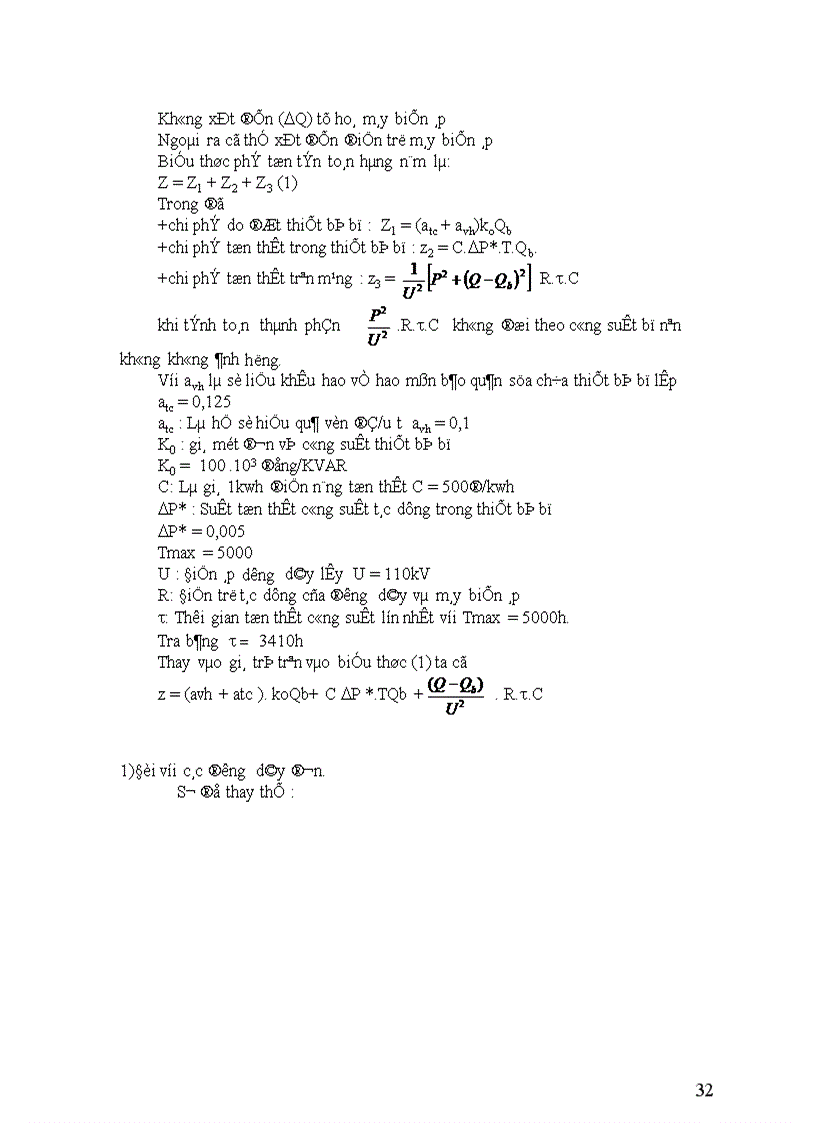 Kh«ng xÐt ®Õn (ΔQ) tõ ho¸ m¸y biÕn ¸p
Ngoµi ra cã thÓ xÐt ®Õn ®iÖn trë m¸y biÕn ¸p
BiÓu thøc phÝ tæn tÝn to¸n hµng n¨m lµ:
Z = Z1 + Z2 + Z3 (1)
Trong ®ã
+chi phÝ do ®Æt thiÕt bÞ bï : Z1 = (atc + avh)koQb
+chi phÝ tæn thÊt trong thiÕt bÞ bï : z2 = C.ΔP*.T.Qb.
+chi phÝ tæn thÊt trªn m¹ng : z3 = 1/U² [P² + (Q − Qb)²] R.τ.C
khi tÝnh to¸n thµnh phÇn P²/U² .R.τ.C kh«ng ®æi theo c«ng suÊt bï nªn
kh«ng kh«ng ¶nh hëng.
Víi avh lµ sè liÖu khÊu hao vÒ hao mßn b¶o qu¶n söa ch÷a thiÕt bÞ bï lÊp
atc = 0,125
atc : Lµ hÖ sè hiÖu qu¶ vèn ®Ç/u t avh = 0,1
K0 : gi¸ mét ®¬n vÞ c«ng suÊt thiÕt bÞ bï
K0 = 100 .10³ ®ång/KVAR
C: Lµ gi¸ 1kwh ®iÖn n¨ng tæn thÊt C = 500®/kwh
ΔP* : SuÊt tæn thÊt c«ng suÊt t¸c dông trong thiÕt bÞ bï
ΔP* = 0,005
Tmax = 5000
U : §iÖn ¸p dêng d©y lÊy U = 110kV
R: §iÖn trë t¸c dông cña ®êng d©y vµ m¸y biÕn ¸p
τ: Thêi gian tæn thÊt c«ng suÊt lín nhÊt víi Tmax = 5000h.
Tra b¶ng τ = 3410h
Thay vµo gi¸ trÞ trªn vµo biÓu thøc (1) ta cã
z = (avh + atc ). koQb+ C ΔP *.TQb + (Q − Qb)/U² . R.τ.C
1)§èi víi c¸c ®êng d©y ®¬n.
S¬ ®å thay thÕ :
32